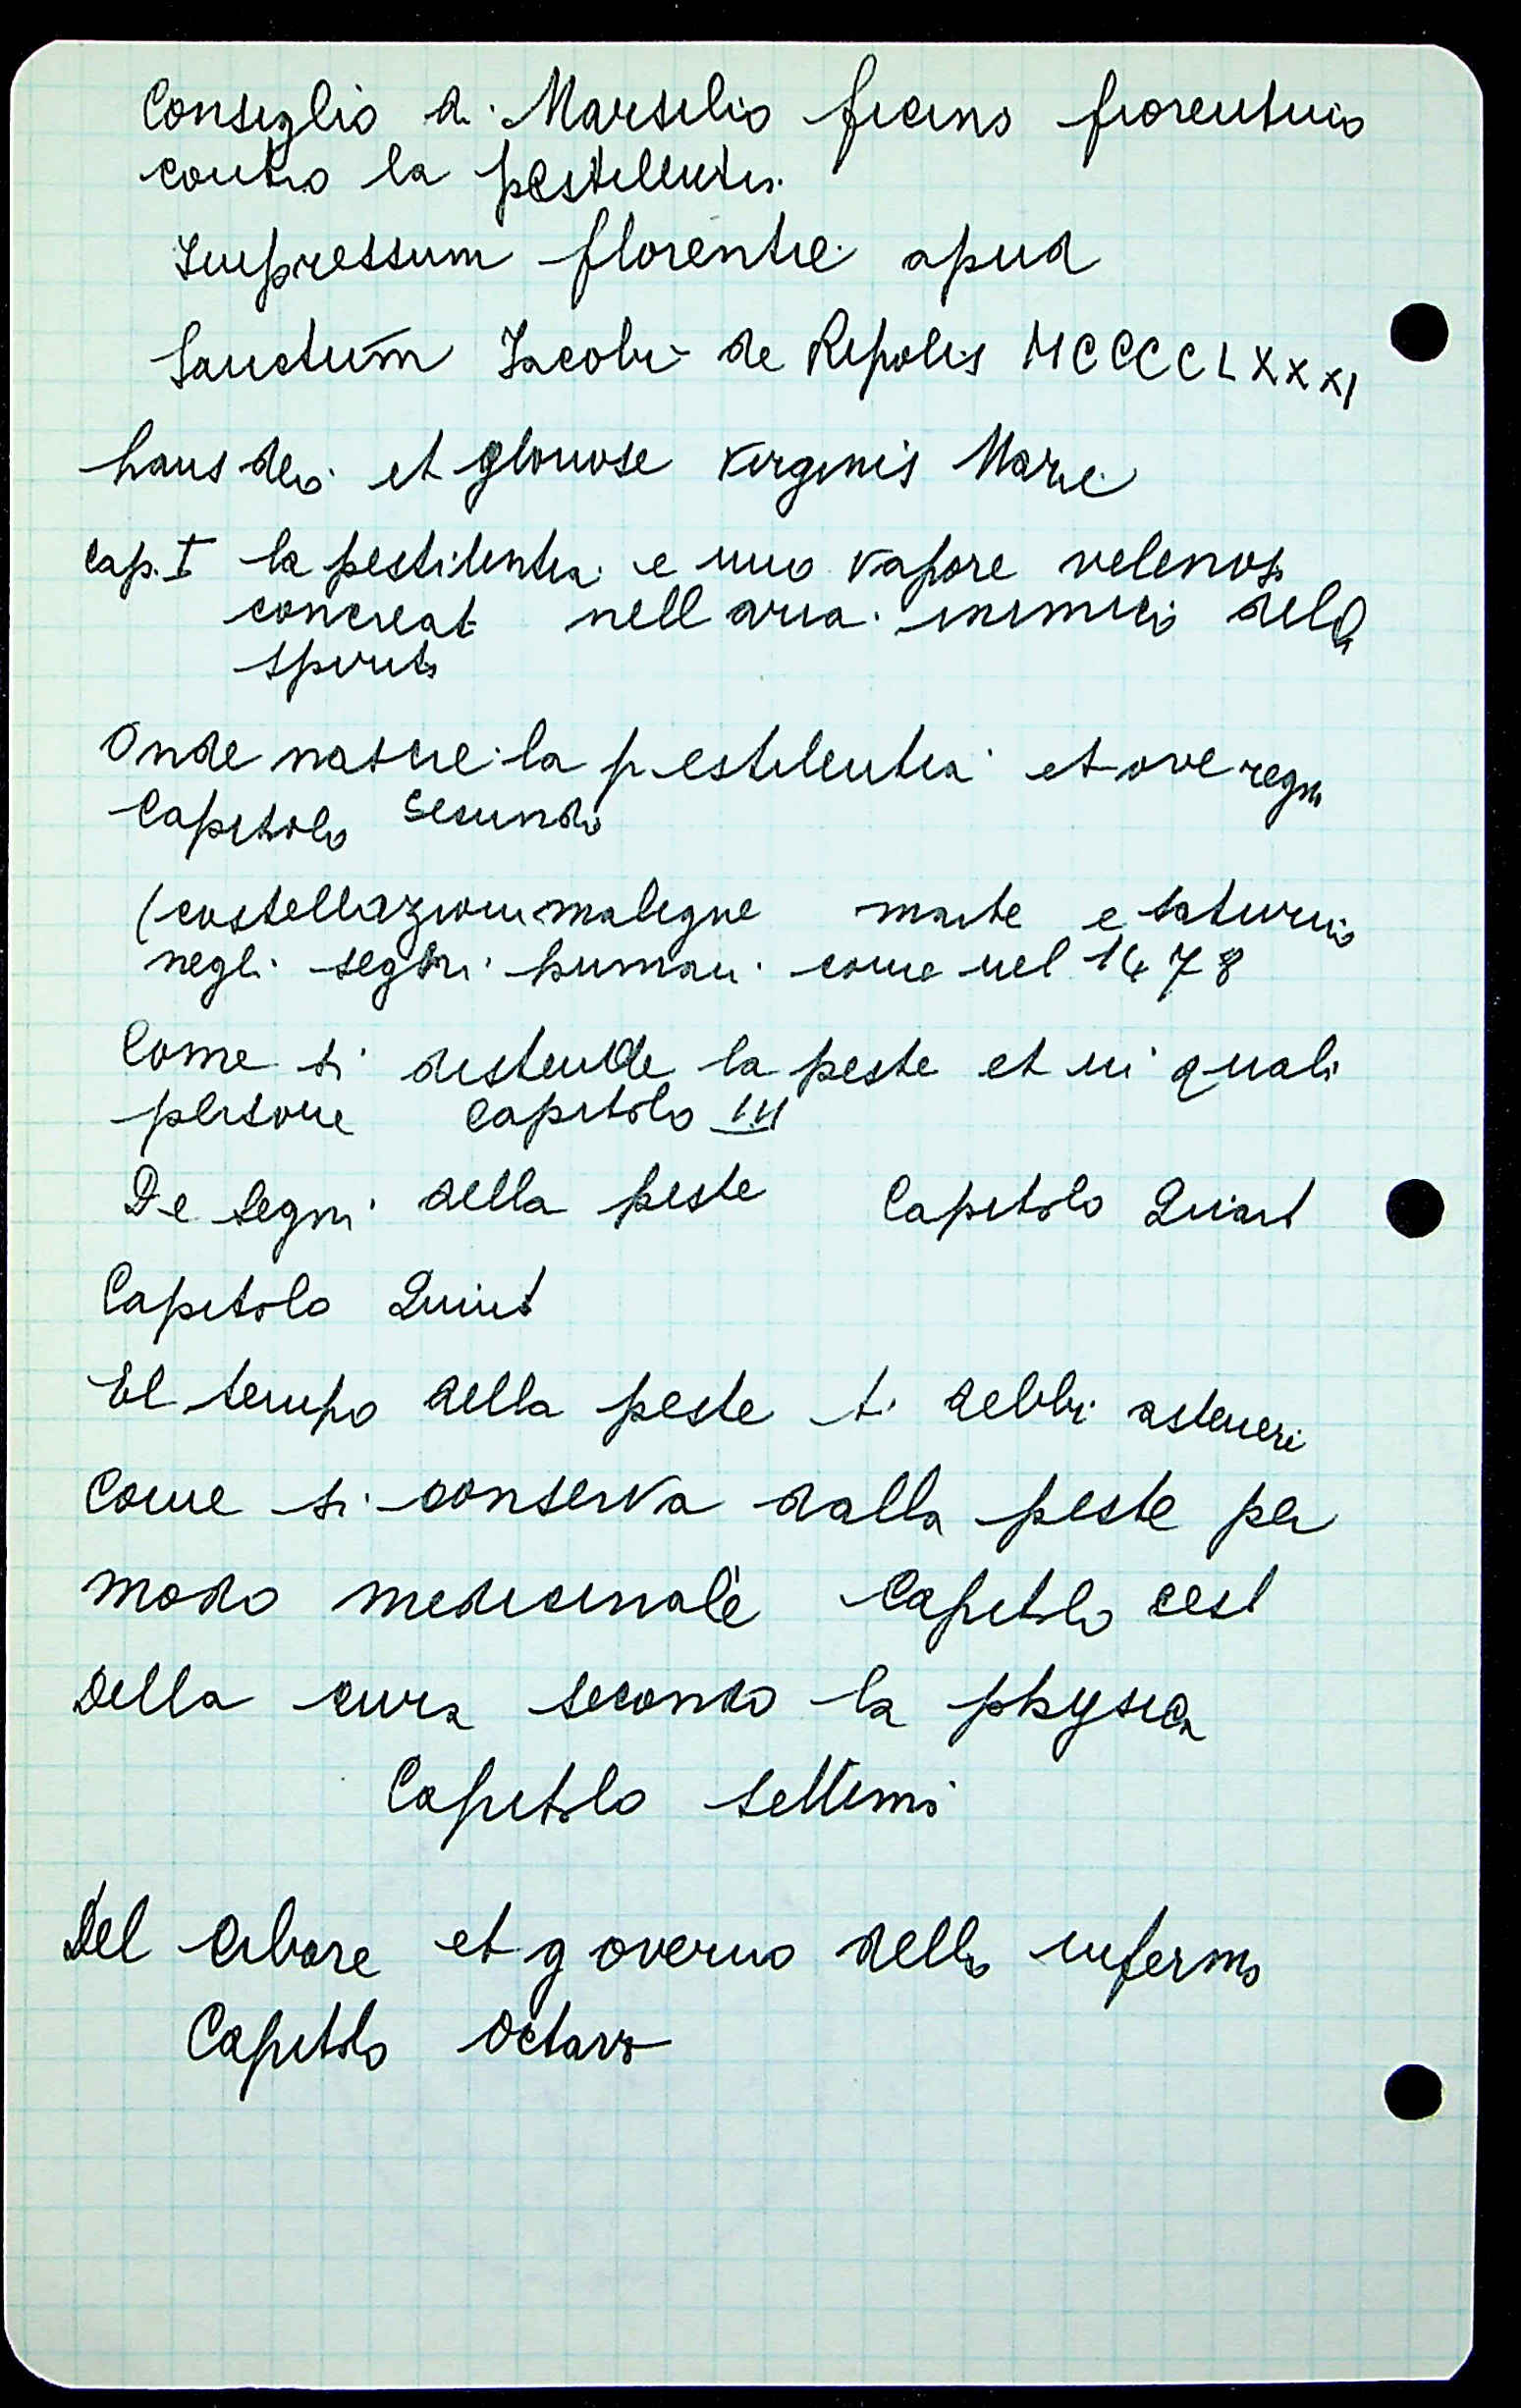 Consiglio di Marsilio ficino fiorentino
contro la pestilentia
Impressum florentie apud
Sanctum Jacobi de Ripolis MCCCCLXXXI
Laus deo et gloriose virginis Marie
Cap. I la pestilentia e uno vapore velenoso
concreato nell aria inimico dello
spirito
Onde nascie la pestilentia et ove regna
Capitolo Secundo
(costellazioni maligne marte e saturno
negli segni humani come nel 1478
Come si distende la peste et in quali
persone Capitolo III
De segni della peste Capitolo Quarto
Capitolo Quinto
El tempo della peste ti debbi astenere
Come si conserva dalla peste per
modo medicinale Capitolo sesto
Della cura secondo la physica
Capitolo settimo
Del cibare et governo dello infermo
Capitolo Octavo